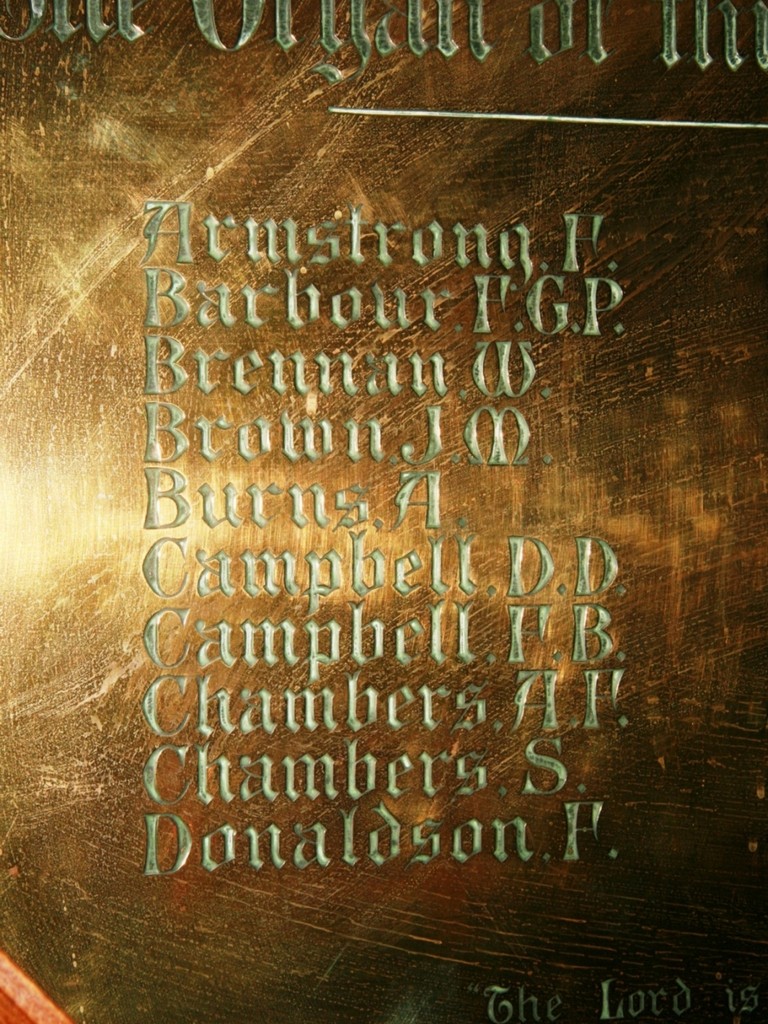 Organ of
Armstrong. F.
Barbour. F.G.P.
Brennan. W.
Brown. J.M.
Burns. A.
Campbell. D.D.
Campbell. F.B.
Chambers. A.F.
Chambers. S.
Donaldson. F.
"The Lord is